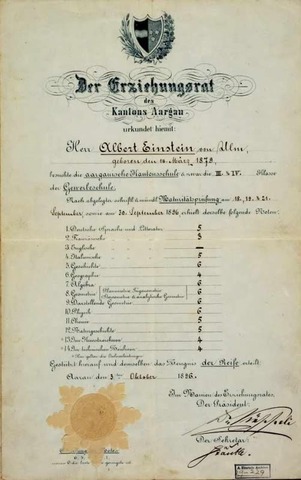 Der Erziehungsrat
des
Kantons Aargau
urkundet hiemit:
Herr Albert Einstein von Ulm,
geboren den 14. März 1879,
besuchte die aargauische Kantonsschule & zwar die III. & IV. Klasse
der Gewerbeschule.
Nach abgelegter schriftl. & mündl. Maturitätsprüfung am 18., 19. & 21.
September, sowie am 30. September 1896 erhielt derselbe folgende Noten:
1. Deutsche Sprache und Litteratur 5
2. Französische 3
3. Englische —
4. Italienische 5
5. Geschichte 6
6. Geographie 4
7. Algebra 6
8. Geometrie 6
9. Darstellende Geometrie 6
10. Physik 6
11. Chemie 5
12. Naturgeschichte 5
13. Im Kunstzeichnen 4
14. Im technischen Zeichnen 4
Gestützt hierauf wird demselben das Zeugnis der Reife erteilt.
Aarau den 3ten Oktober 1896.
Im Namen des Erziehungsrates,
Der Präsident:
Der Sekretär: